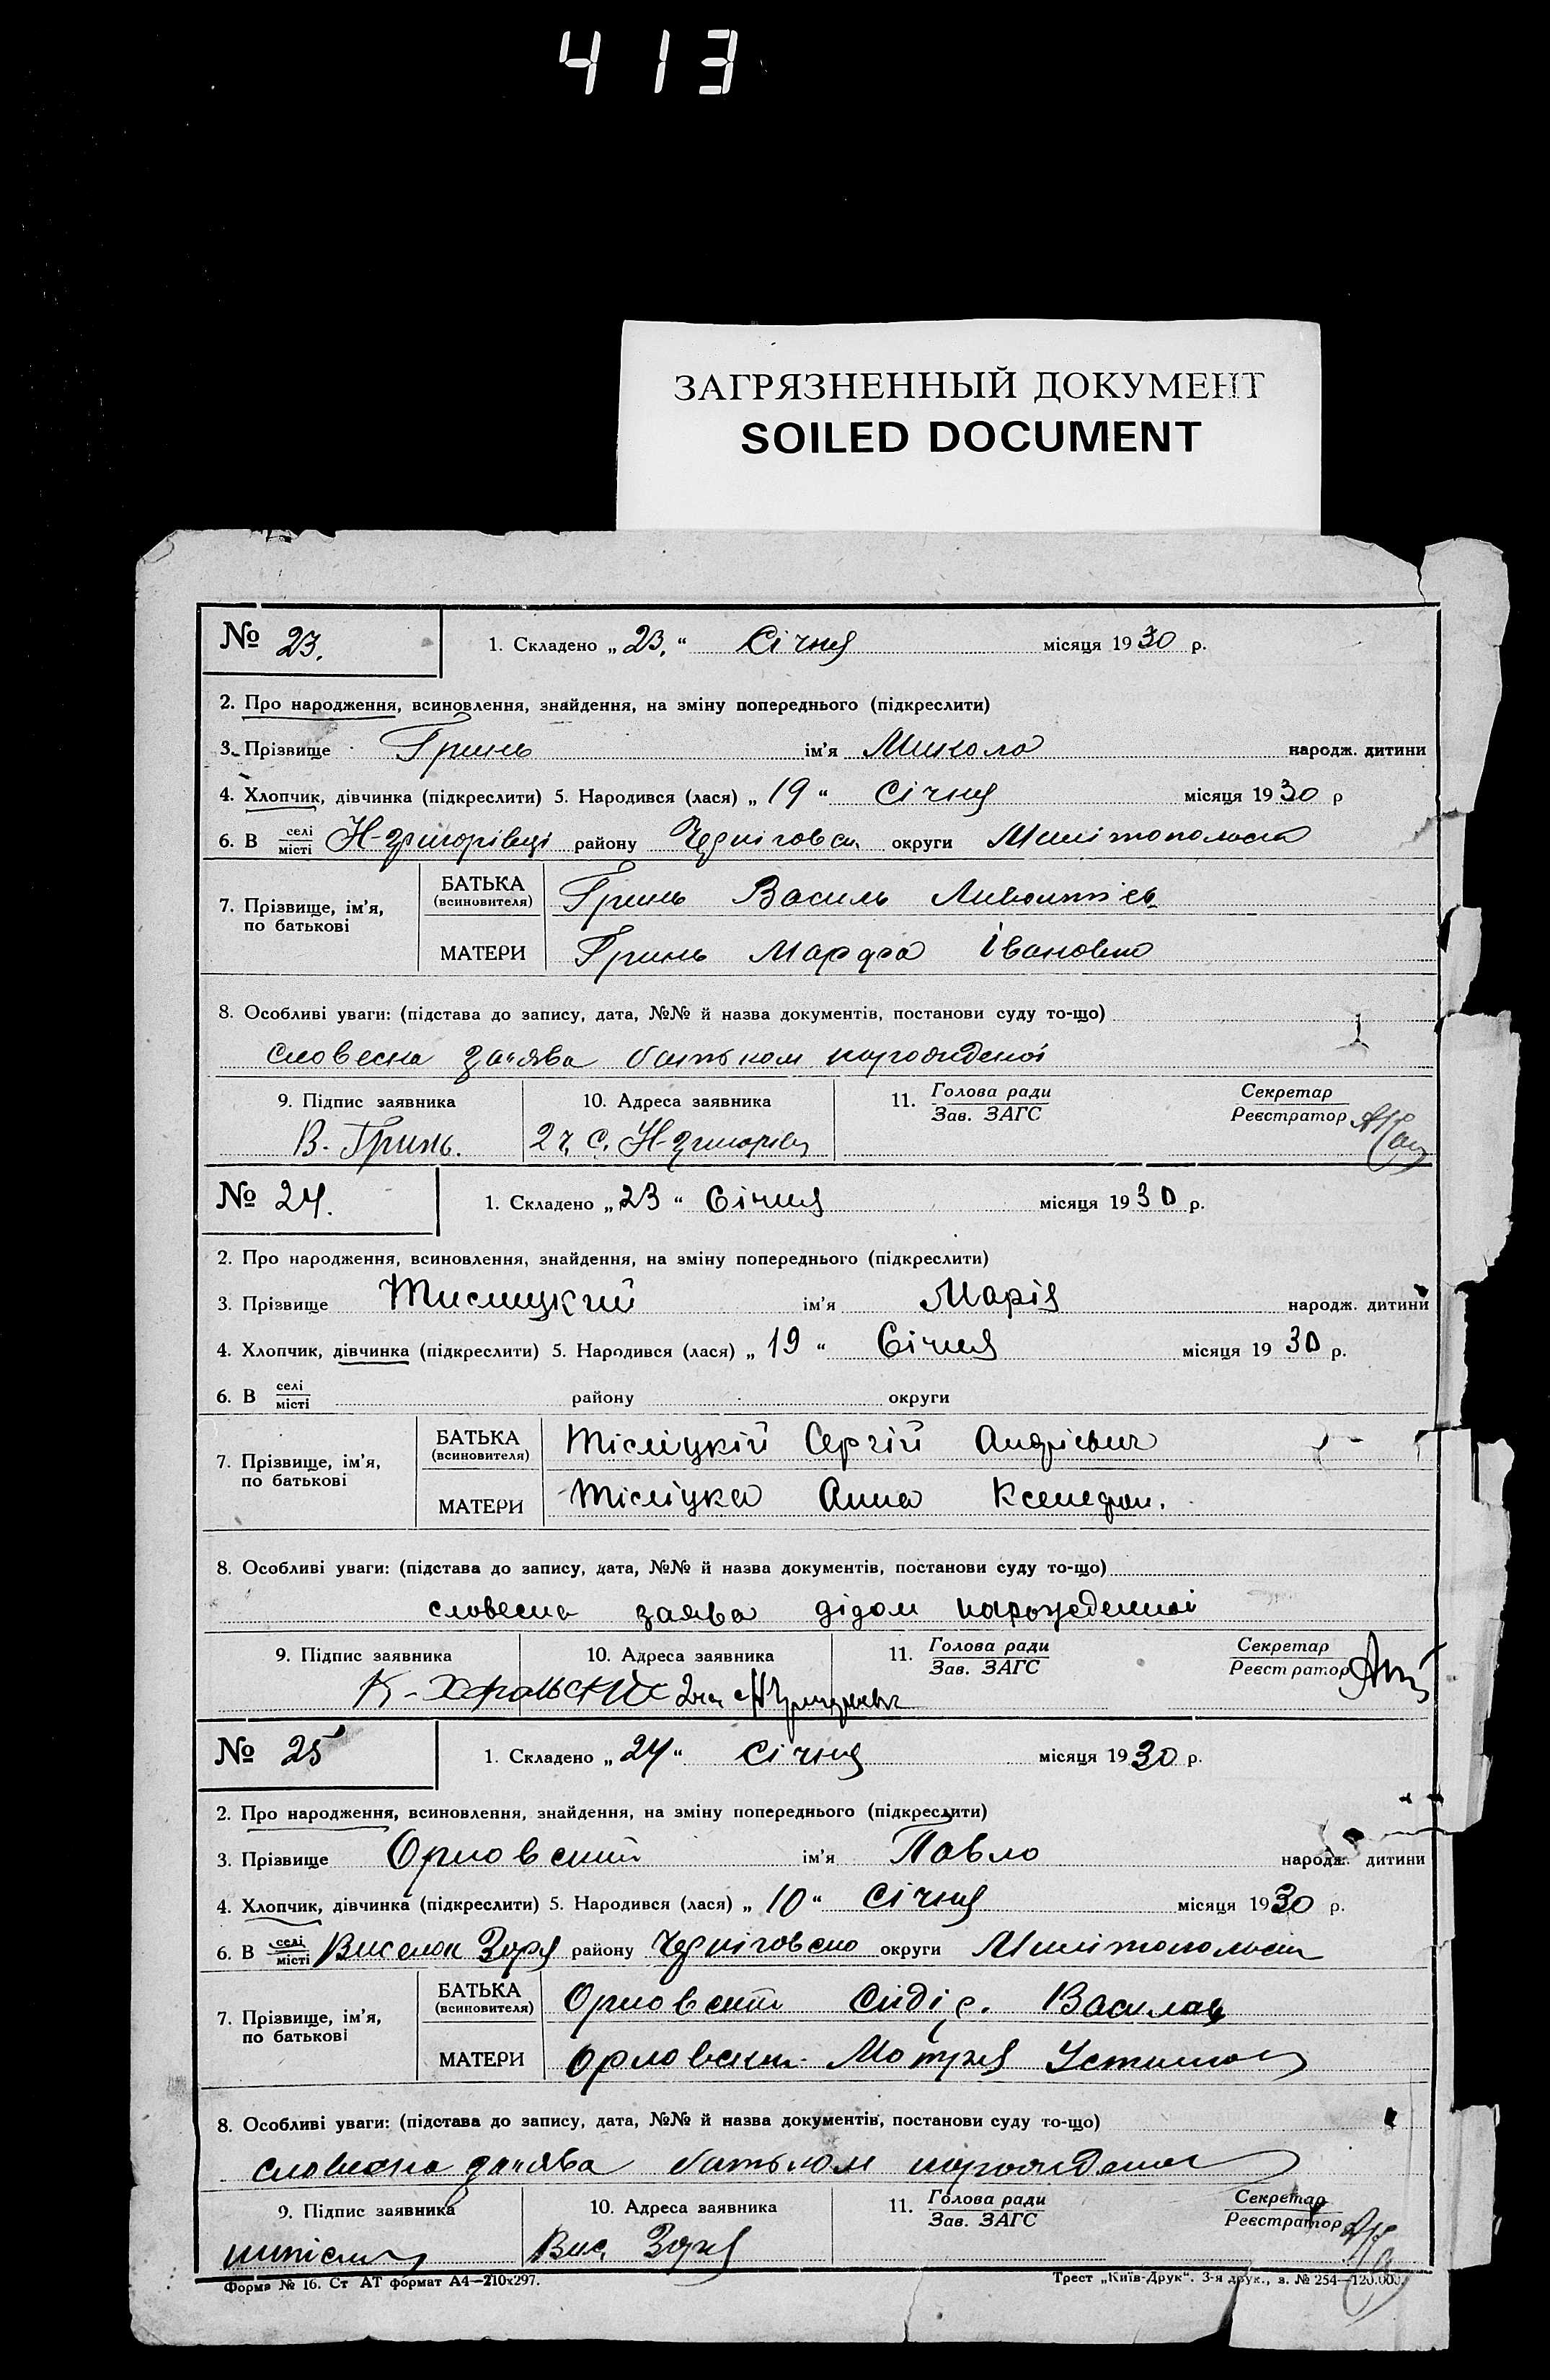 413
ЗАГРЯЗНЕННЫЙ ДОКУМЕНТ
SOILED DOCUMENT
№ 23.
1. Складено „23.“ Січня місяця 1930 р.
2. Про народження, всиновлення, знайдення, на зміну попереднього (підкреслити)
3. Прізвище Гринь ім'я Микола народж. дитини
4. Хлопчик, дівчинка (підкреслити) 5. Народився (лася) „19“ Січня місяця 1930 р
6. В селі/місті Н-григорівці району Черніговськ. округи
7. Прізвище, ім'я, по батькові
БАТЬКА (всиновителя) Гринь Василь
МАТЕРИ Гринь Марфа Івановна
8. Особливі уваги: (підстава до запису, дата, №№ й назва документів, постанови суду то-що)
словесна заява батьком
9. Підпис заявника 10. Адреса заявника 11. Голова ради/Зав. ЗАГС Секретар/Реєстратор
В. Гринь. 2ч. С. Н-григорівц
№ 24.
1. Складено „23“ Січня місяця 1930 р.
2. Про народження, всиновлення, знайдення, на зміну попереднього (підкреслити)
3. Прізвище Тислицкий ім'я Марія народж. дитини
4. Хлопчик, дівчинка (підкреслити) 5. Народився (лася) „19“ Січня місяця 1930 р.
6. В селі/місті району округи
7. Прізвище, ім'я, по батькові
БАТЬКА (всиновителя) Тісліцкій Сергій Андрієвич
МАТЕРИ Тісліцка Анна Ксенефон.
8. Особливі уваги: (підстава до запису, дата, №№ й назва документів, постанови суду то-що)
словесна заява дідом народженной
9. Підпис заявника 10. Адреса заявника 11. Голова ради/Зав. ЗАГС Секретар/Реєстратор
№ 25
1. Складено „24“ Січня місяця 1930 р.
2. Про народження, всиновлення, знайдення, на зміну попереднього (підкреслити)
3. Прізвище Орловский ім'я Павло народж. дитини
4. Хлопчик, дівчинка (підкреслити) 5. Народився (лася) „10“ Січня місяця 1930 р.
6. В селі/місті Виселок Зоря району Черніговсько округи
7. Прізвище, ім'я, по батькові
БАТЬКА (всиновителя) Орловский
МАТЕРИ Орловськ. Мотря
8. Особливі уваги: (підстава до запису, дата, №№ й назва документів, постанови суду то-що)
словесна заява батьком
9. Підпис заявника 10. Адреса заявника 11. Голова ради/Зав. ЗАГС Секретар/Реєстратор
Вис. Зоря
Форма № 16. Ст АТ формат А4—210х297. Трест „Київ-Друк“. 3-я друк., з. № 254—120.000.